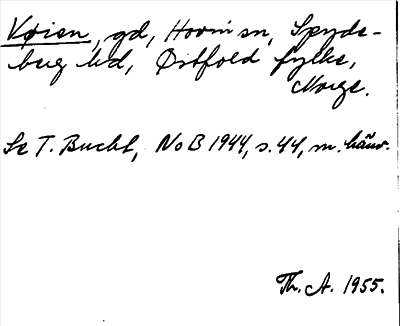 Køien, gd, Hovin sn, Spyde-
berg hd, Østfold fylke,
Norge.
Se T. Bucht, NoB 1944, s. 44, m. hänv.
Th. A. 1955.